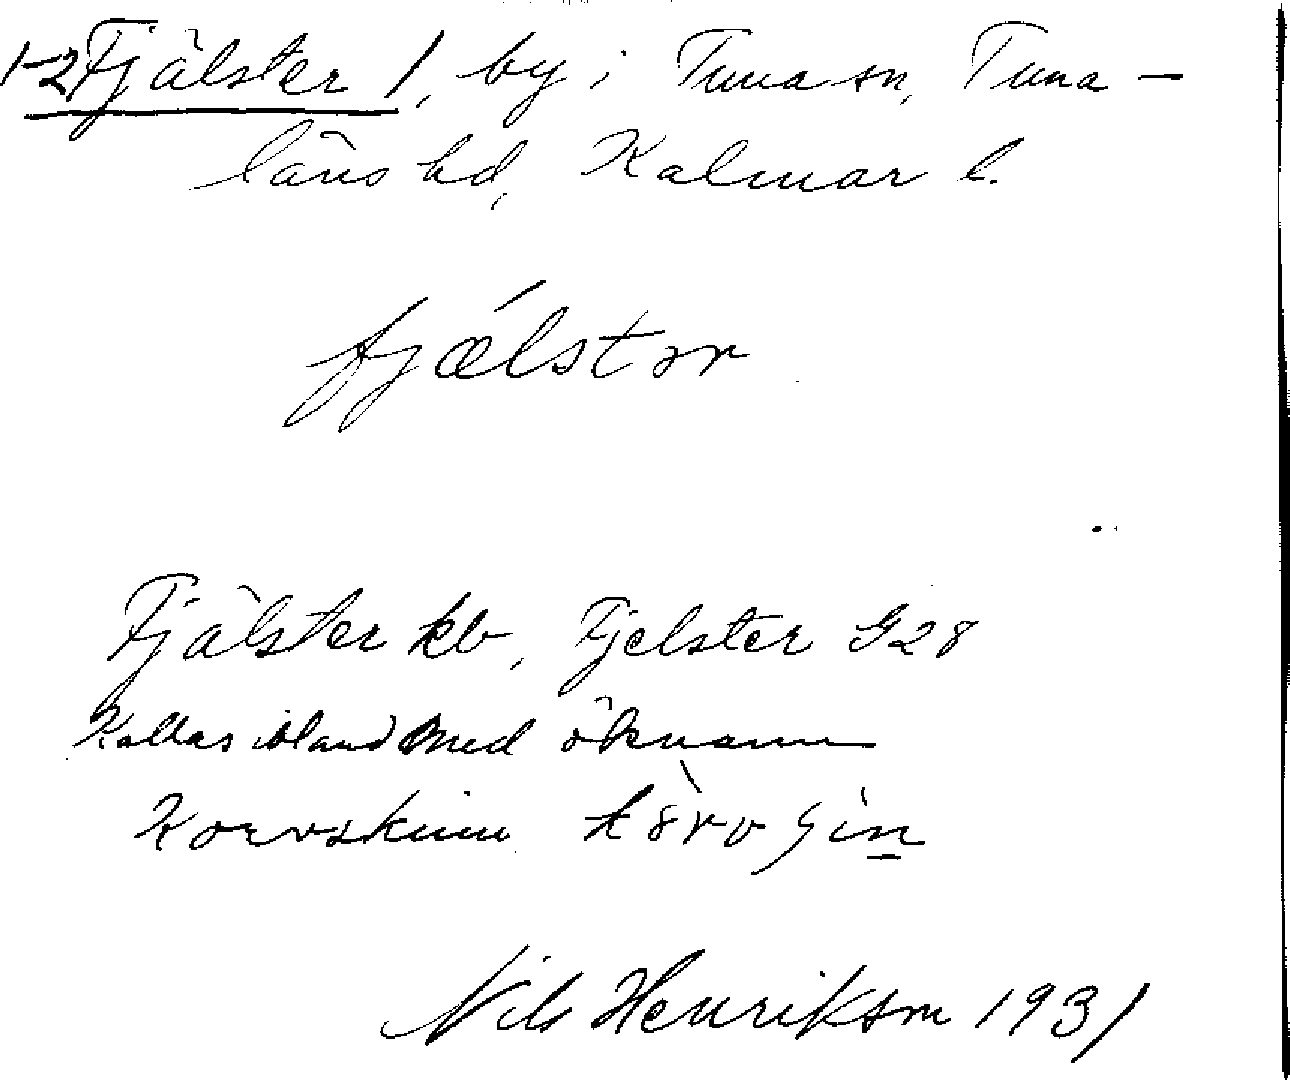 1-2 Fjälster 1, by i Tuna sn, Tuna-
läns hd, Kalmar l.
fjælstər
Fjälster kb, Fjelster G28
Kallas ibland med öknamn
Korvskinn
Nils Henriksson 1931